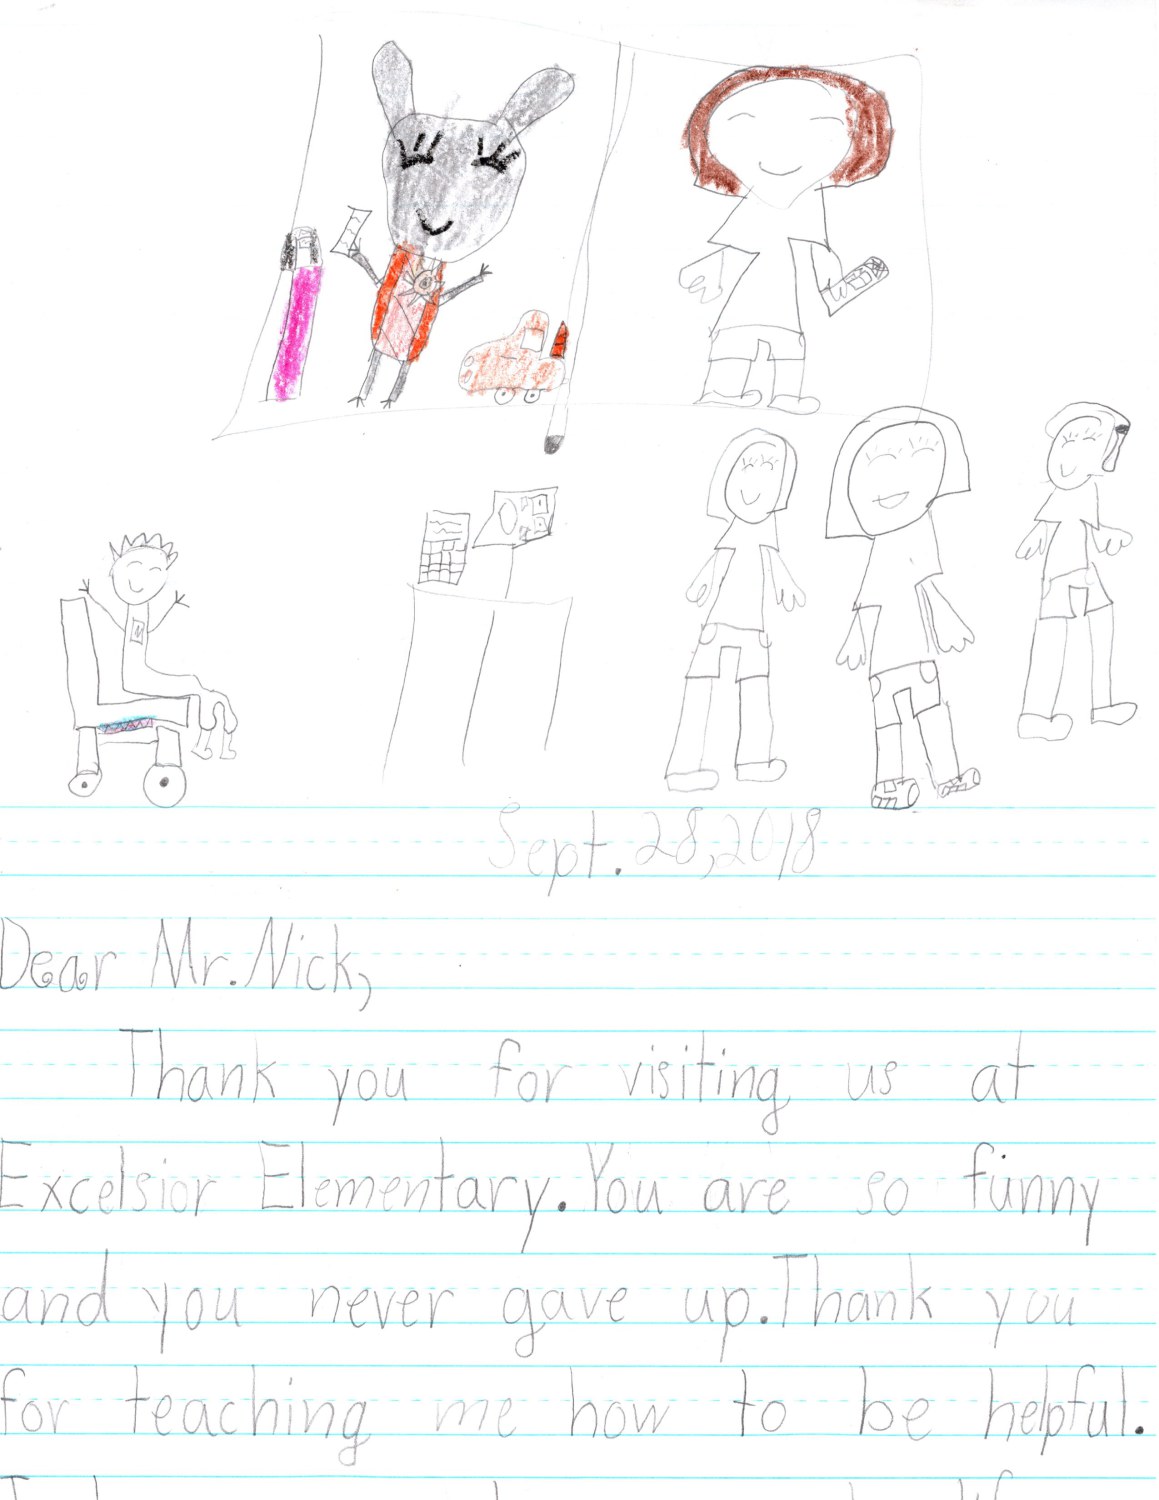 Sept. 28, 2018
Dear Mr. Nick,
Thank you for visiting us at
Excelsior Elementary. You are so funny
and you never gave up. Thank you
for teaching me how to be helpful.